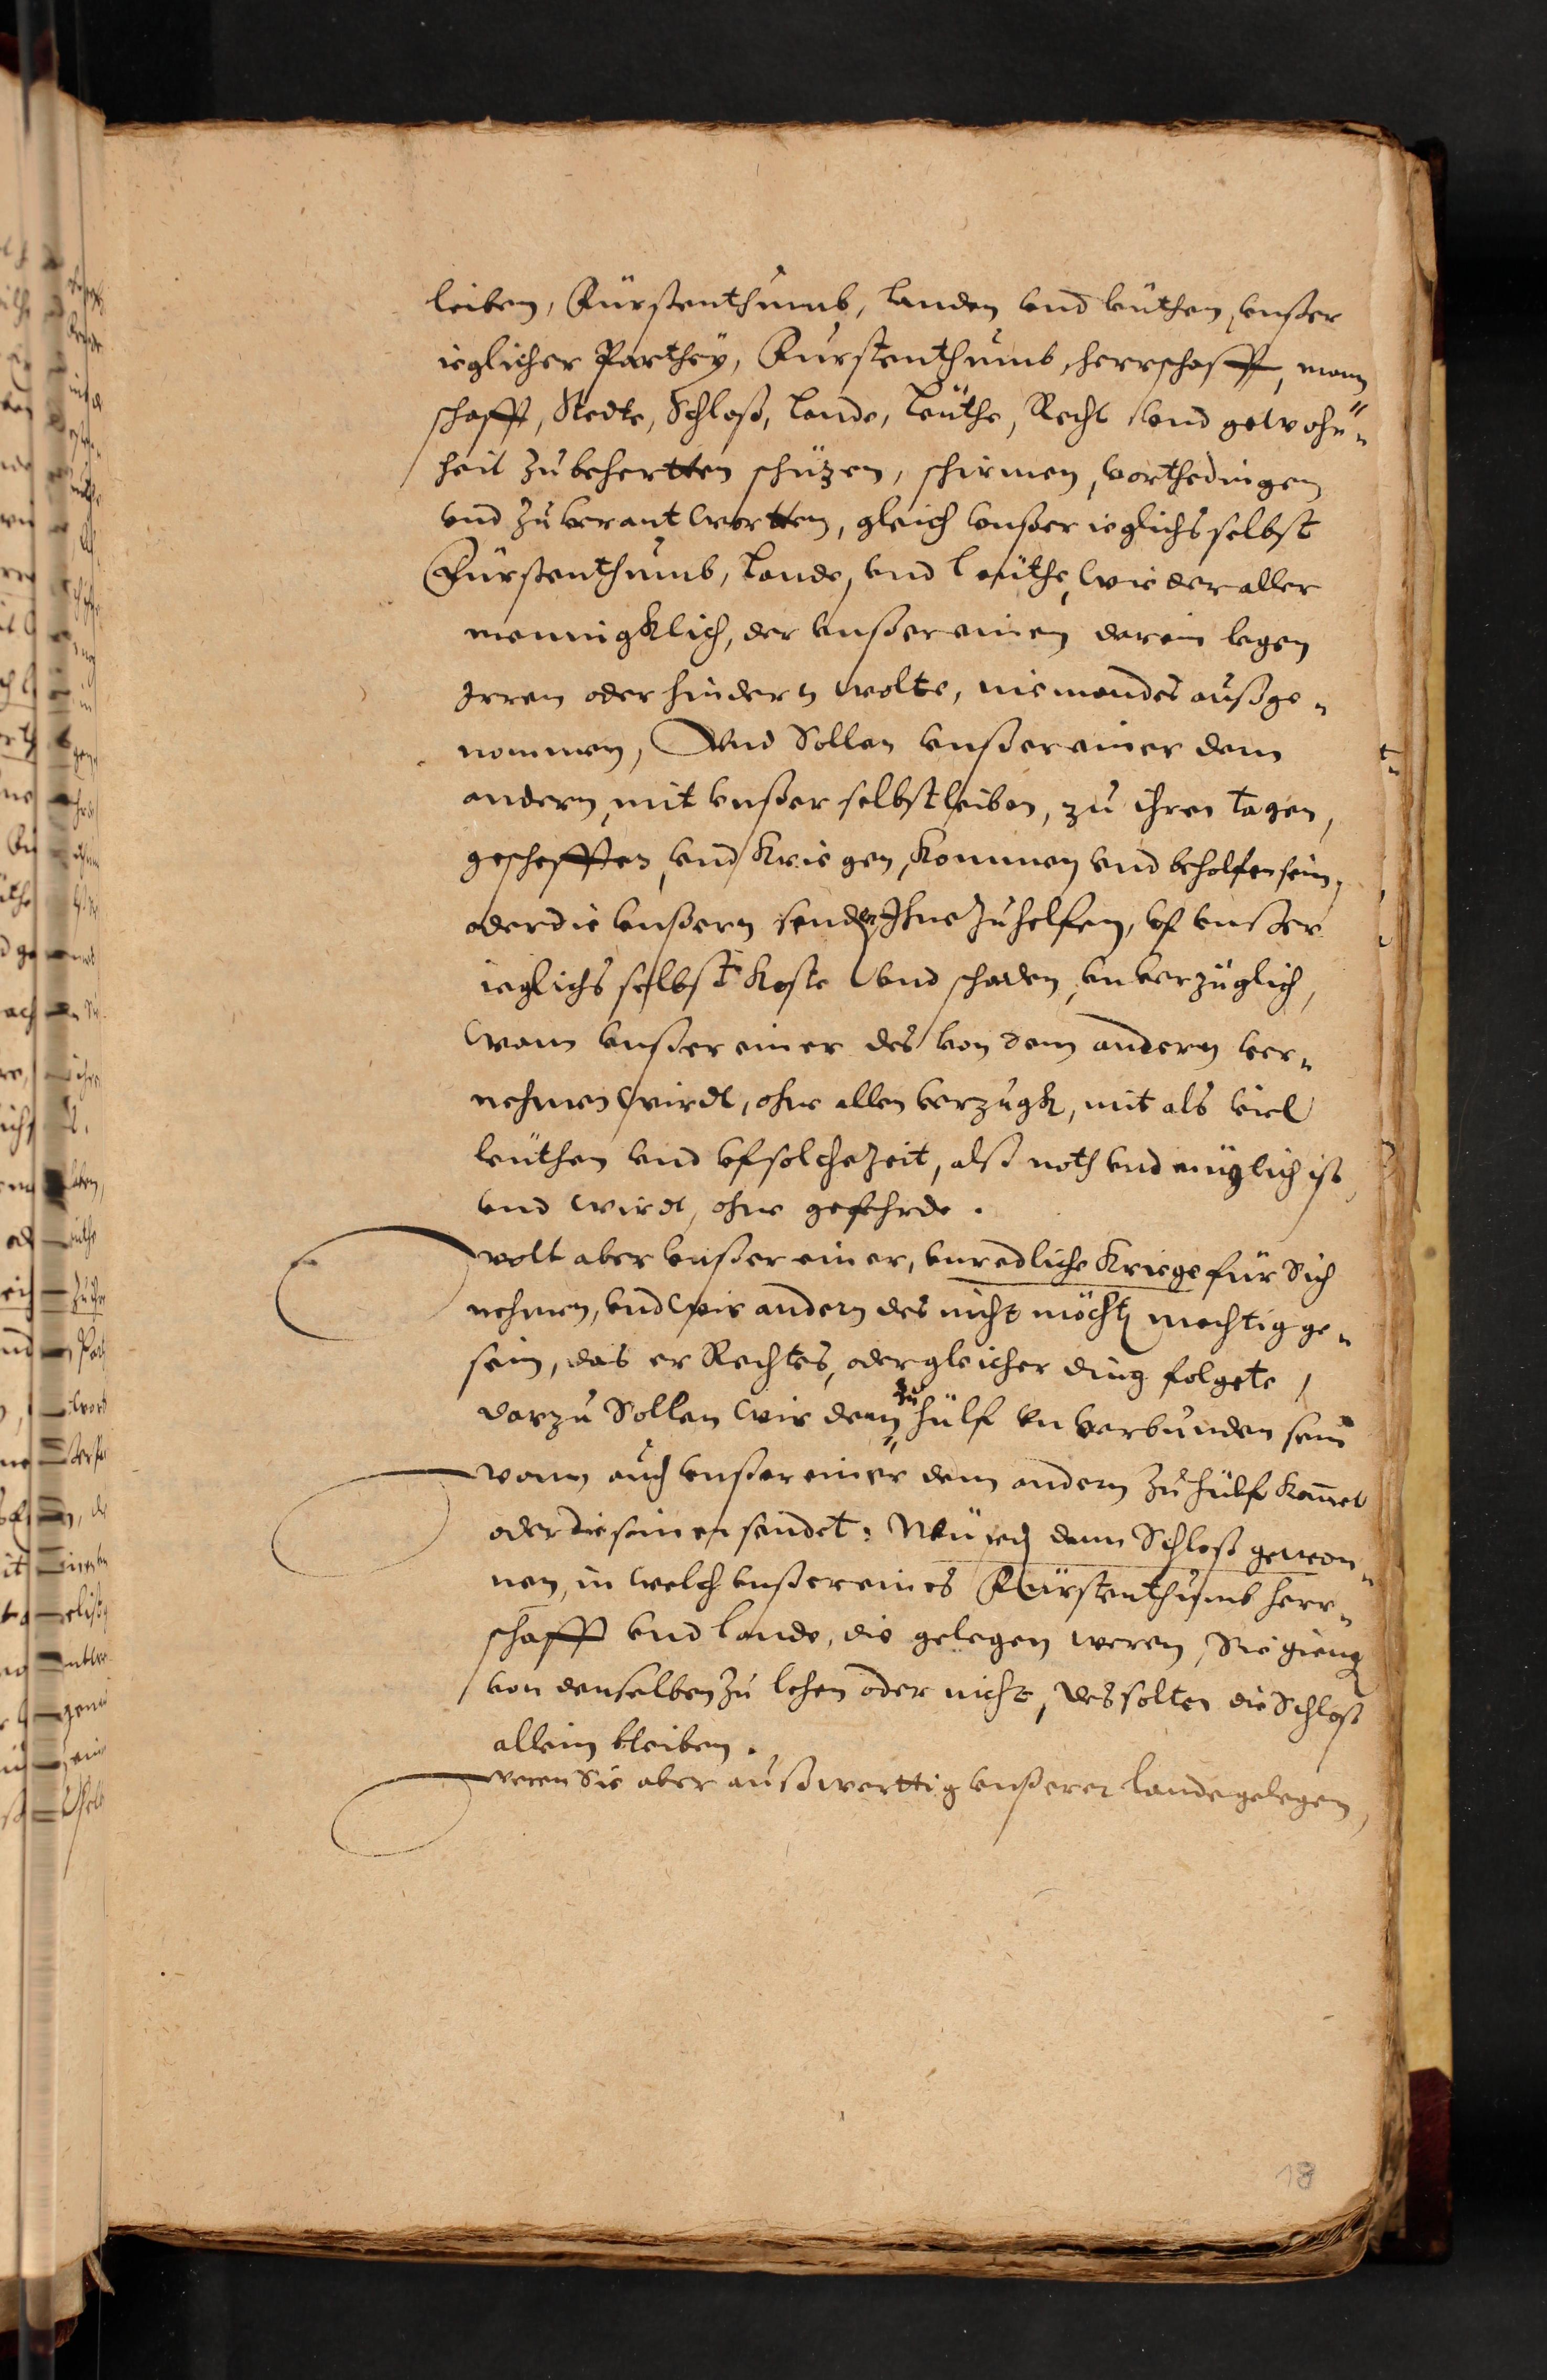 leiben, Fürstenthumb, landen vnd leuthen, vnßer
ieglicher Parthey, Furstenthumb, herrschafft, mann
schafft, Stedte, Schloß, Lande, Leüthe, Recht vnd gewohn„
heit zu behertten schützen, schirmen, vorthedingen
vnd zu verantwortten, gleich vnßer ieglichs selbst
Fürstenthumb, Lande, vnd Leüthe, wieder aller
mennigklich, der vnßer einen darein legen
Irren oder hindern wolte, niemandes außge„
nommen, Vnd Sollen vnßer einer dem
andern, mit vnßer selbst leiben, zu ihren tagen,
geschefften, vnd Kriegen, Kommen vnd beholfen sein,
oder die vnßern senden Ihne zu helfen, vf vnßer
ieglichs selbst Koste vnd schaden, vnverzüglich,
wann vnßer einer des von dem andern ver„
nehmen wirdt, ohne allen verzugk, mit als viel
leuthen vnd vf solche Zeit, alß noth vnd müglich ist,
vnd wirdt, ohne gefehrde.
wolt aber vnßer einer, vnredliche Kriege für Sich
nehmen, vnd wir andern des nicht möchten mechtig ge„
sein, das er Rechtes, oder gleicher ding folgete,
darzu Sollen wir dem zu hülf vnverbunden sein
wann auch vnßer einer dem andern zu hülf kommet
oder die seinen sendet: Würden dann Schloß gewon„
nen, in welch vnßer eines Fürstenthumb herr„
schafft vnd lande, die gelegen weren, Sie gieng
von denselben zu lehen oder nicht, des solten die Schloß
allein bleiben.
weren Sie aber außwerttig vnßerer lande gelegen,
18